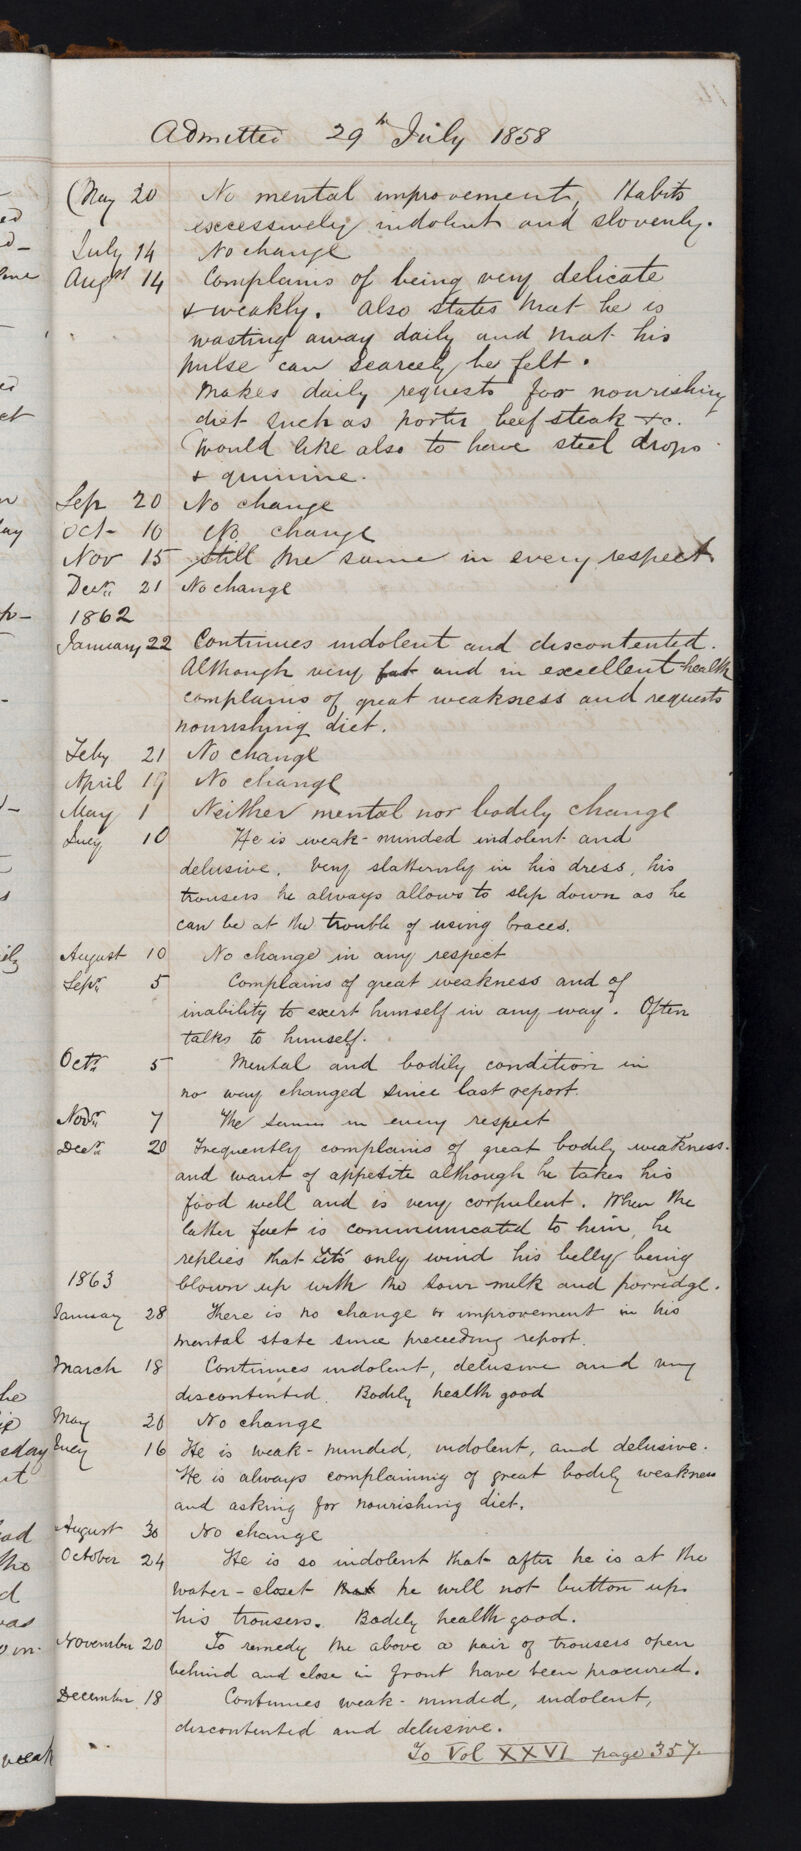 Admitted 29th July 1858
(May 20 No mental improvement, Habits
excessively indolent and slovenly.
July 14 No change
Augst 14 Complains of being very delicate
& weakly. Also states that he is
wasting away daily and that his
pulse can scarcely be felt.
Makes daily requests for nourishing
diet such as porter beef steak &c.
Would like also to have steel drops
& quinine.
Sep 20 No change
Oct 10 No change
Nov 15 Still the same in every respect
Decr 21 No change
1862
January 22 Continues indolent and discontented.
Although very fat and in excellent health
complains of great weakness and requests
nourishing diet.
Feby 21 No change
April 19 No change
May 1 Neither mental nor bodily change
July 10 He is weak-minded indolent and
delusive. Very slatternly in his dress, his
trousers he always allows to slip down as he
can be at the trouble of using braces.
August 10 No change in any respect
Sepr 5 Complains of great weakness and of
inability to exert himself in any way. Often
talks to himself.
Octr 5 Mental and bodily condition in
no way changed since last report.
Novr 7 The same in every respect
Decr 20 Frequently complains of great bodily weakness
and want of appetite although he takes his
food well and is very corpulent. When the
latter fact is communicated to him, he
replies that its only wind his belly being
1863 blown up with the sour milk and porridge.
January 28 There is no change or improvement in his
mental state since preceding report.
March 18 Continues indolent, delusive and very
discontented. Bodily health good
May 26 No change
July 16 He is weak-minded, indolent, and delusive.
He is always complaining of great bodily weakness
and asking for nourishing diet.
August 30 No change
October 24 He is so indolent that after he is at the
water-closet that he will not button up
his trousers. Bodily health good.
November 20 To remedy the above a pair of trousers open
behind and close in front have been procured.
December 18 Continues weak-minded, indolent,
discontented and delusive.
To Vol XXVI page 357.